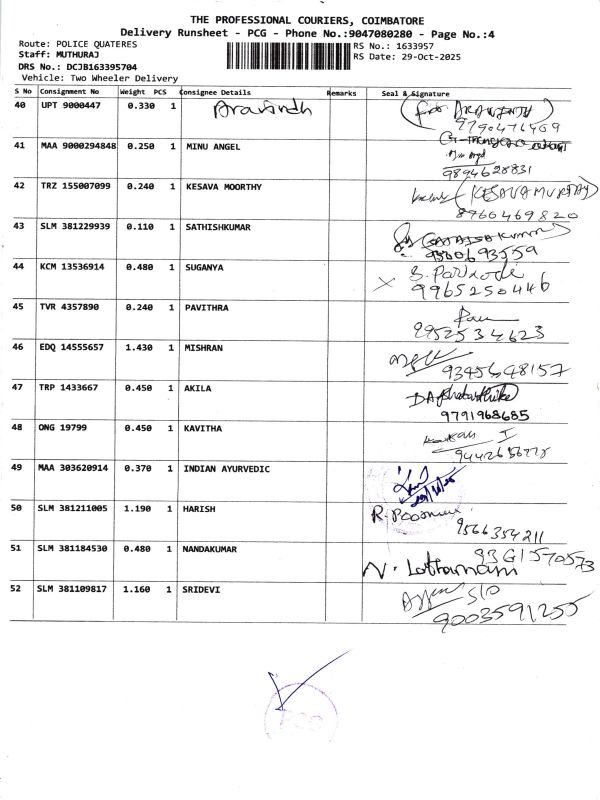 THE PROFESSIONAL COURIERS, COIMBATORE
Delivery Runsheet - PCG - Phone No.:9047080280 - Page No.:4
Route: POLICE QUATERES RS No.: 1633957
Staff: MUTHURAJ RS Date: 29-Oct-2025
DRS No.: DCJB163395704
Vehicle: Two Wheeler Delivery
S No Consignment No Weight PCS Consignee Details Remarks Seal & Signature
40 UPT 9000447 0.330 1 Aravindh (for ARAVINTH)
9790471469
41 MAA 9000294848 0.250 1 MINU ANGEL
9894628831
42 TRZ 155007099 0.240 1 KESAVA MOORTHY (KESAVA MURTHY)
8760469820
43 SLM 381229939 0.110 1 SATHISHKUMAR
9300693559
44 KCM 13536914 0.480 1 SUGANYA
9965250446
45 TVR 4357890 0.240 1 PAVITHRA
9952534623
46 EDQ 14555657 1.430 1 MISHRAN
9345648157
47 TRP 1433667 0.450 1 AKILA
9791968685
48 ONG 19799 0.450 1 KAVITHA
49 MAA 303620914 0.370 1 INDIAN AYURVEDIC
50 SLM 381211005 1.190 1 HARISH
9566354211
51 SLM 381184530 0.480 1 NANDAKUMAR
52 SLM 381109817 1.160 1 SRIDEVI S/O
9003591255